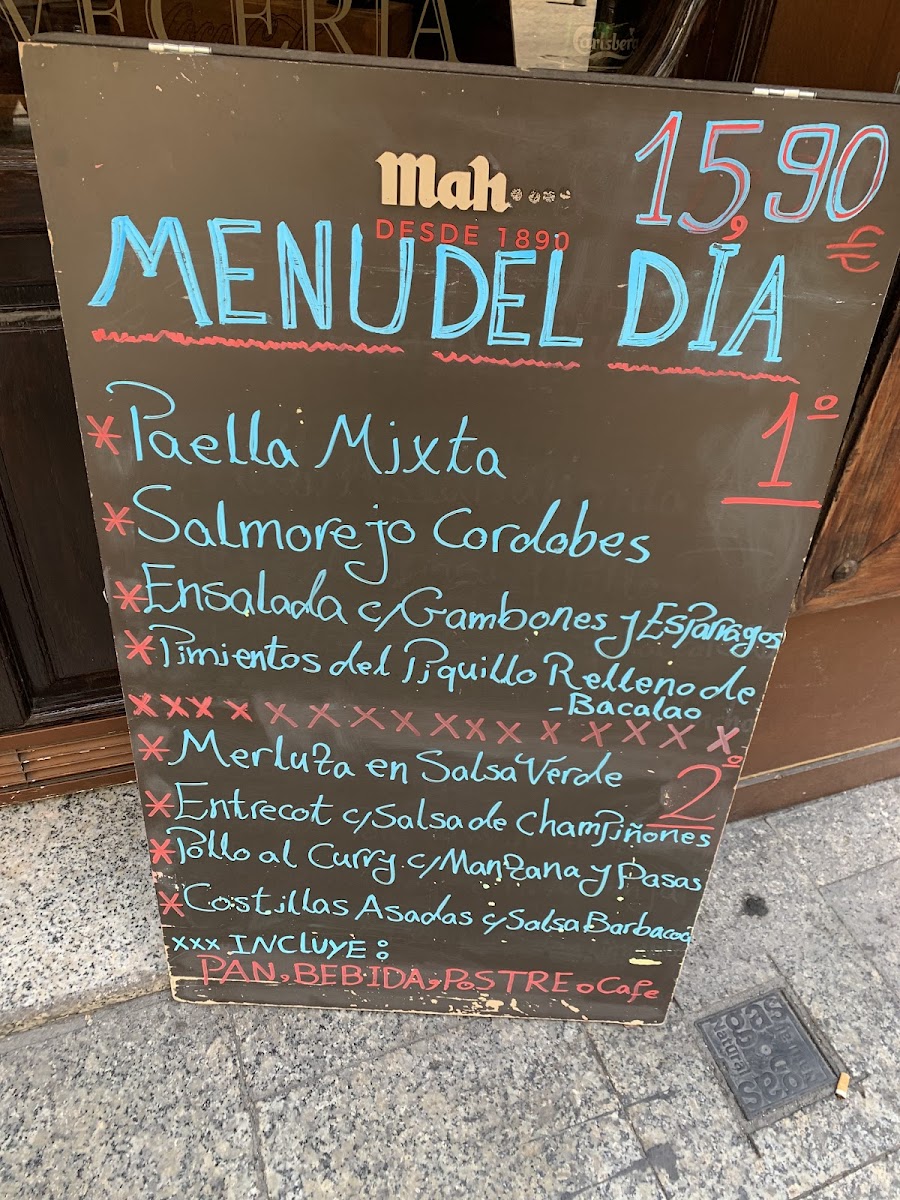 VECERÍA
Carlsberg
15,90
€
Mah
DESDE 1890
MENU DEL DÍA
1º
* Paella Mixta
* Salmorejo Cordobes
* Ensalada c/Gambones y Esparragos
* Pimientos del Piquillo Relleno de
-Bacalao
xxxxxxxxxxxxxxx
2º
* Merluza en Salsa Verde
* Entrecot c/Salsa de Champiñones
* Pollo al Curry c/Manzana y Pasas
* Costillas Asadas c/Salsa Barbacoa
xxx INCLUYE:
PAN, BEBIDA, POSTRE o Cafe
gas
natural